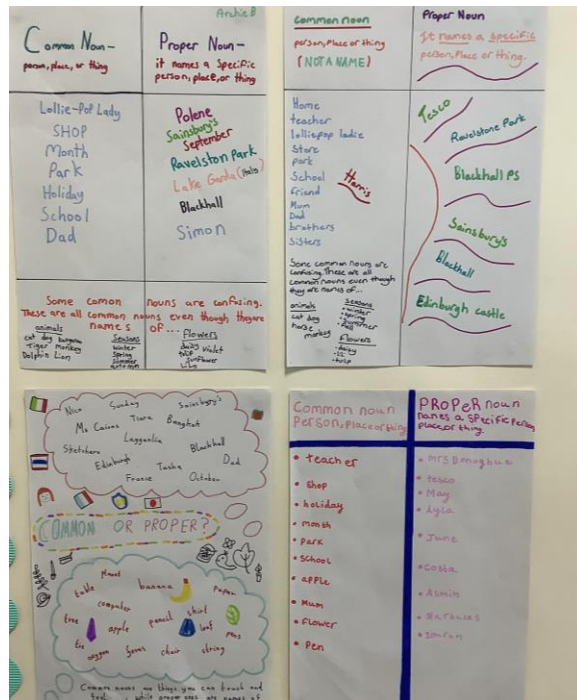 Archie B
Common Noun-
person, place, or thing
Proper Noun-
it names a specific
person, place, or thing
Lollie-Pop Lady
SHOP
Month
Park
Holiday
School
Dad
Polene
Sainsbury's
September
Ravelston Park
Lake Garda
Blackhall
Simon
Some comon nouns are confusing.
These are all common nouns even though they are
names of...
animals
cat dog
Tiger monkey
Dolphin Lion
Seasons
winter
spring
summer
autumn
Flowers
daisy violet
tulip
sunflower
Common noun
person, place or thing
(NOT A NAME)
Proper Noun
It names a specific
person, place or thing.
Home
teacher
lolliepop ladie
Store
park
School
friend
Mum
Dad
brothers
Sisters
Harris
Tesco
Ravelstone Park
Blackhall PS
Sainsbury's
Blackhall
Edinburgh castle
Some common nouns are
confusing. These are all
common nouns even though
they are names of...
animals
cat dog
horse
monkey
Seasons
winter
spring
summer
Flowers
daisy
tulip
Nico Sunday Sainsbury's
Ms Cairns Tiara Bangkok
Sketchers Lagganlia Blackhall
Edinburgh Tasha Dad
France October
COMMON OR PROPER?
planet
table banana paper
computer
tree apple pencil shirt leaf pens
oxygen chair string
Common nouns are things you can touch and
while proper ones are names of
Common noun
Person, place or thing
PROPER noun
names a specific person
place or thing.
teacher
shop
holiday
month
park
school
apple
Mum
flower
Pen
Mrs Donoghue
tesco
May
Ayla
June
Costa